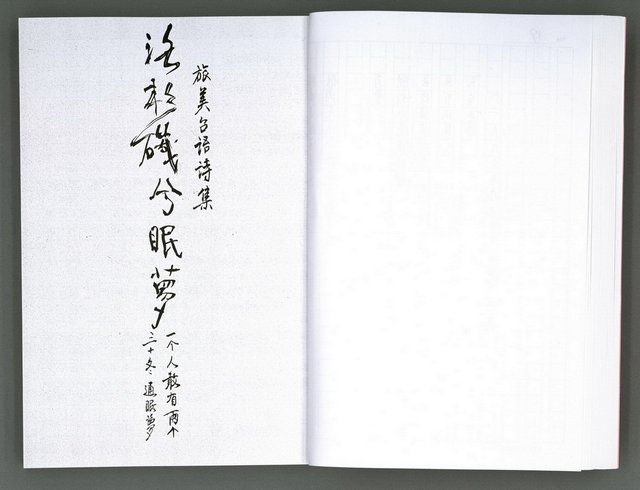 旅美台語詩集
洛杉磯兮眠夢
一个人敢有两个
三十冬通眠夢